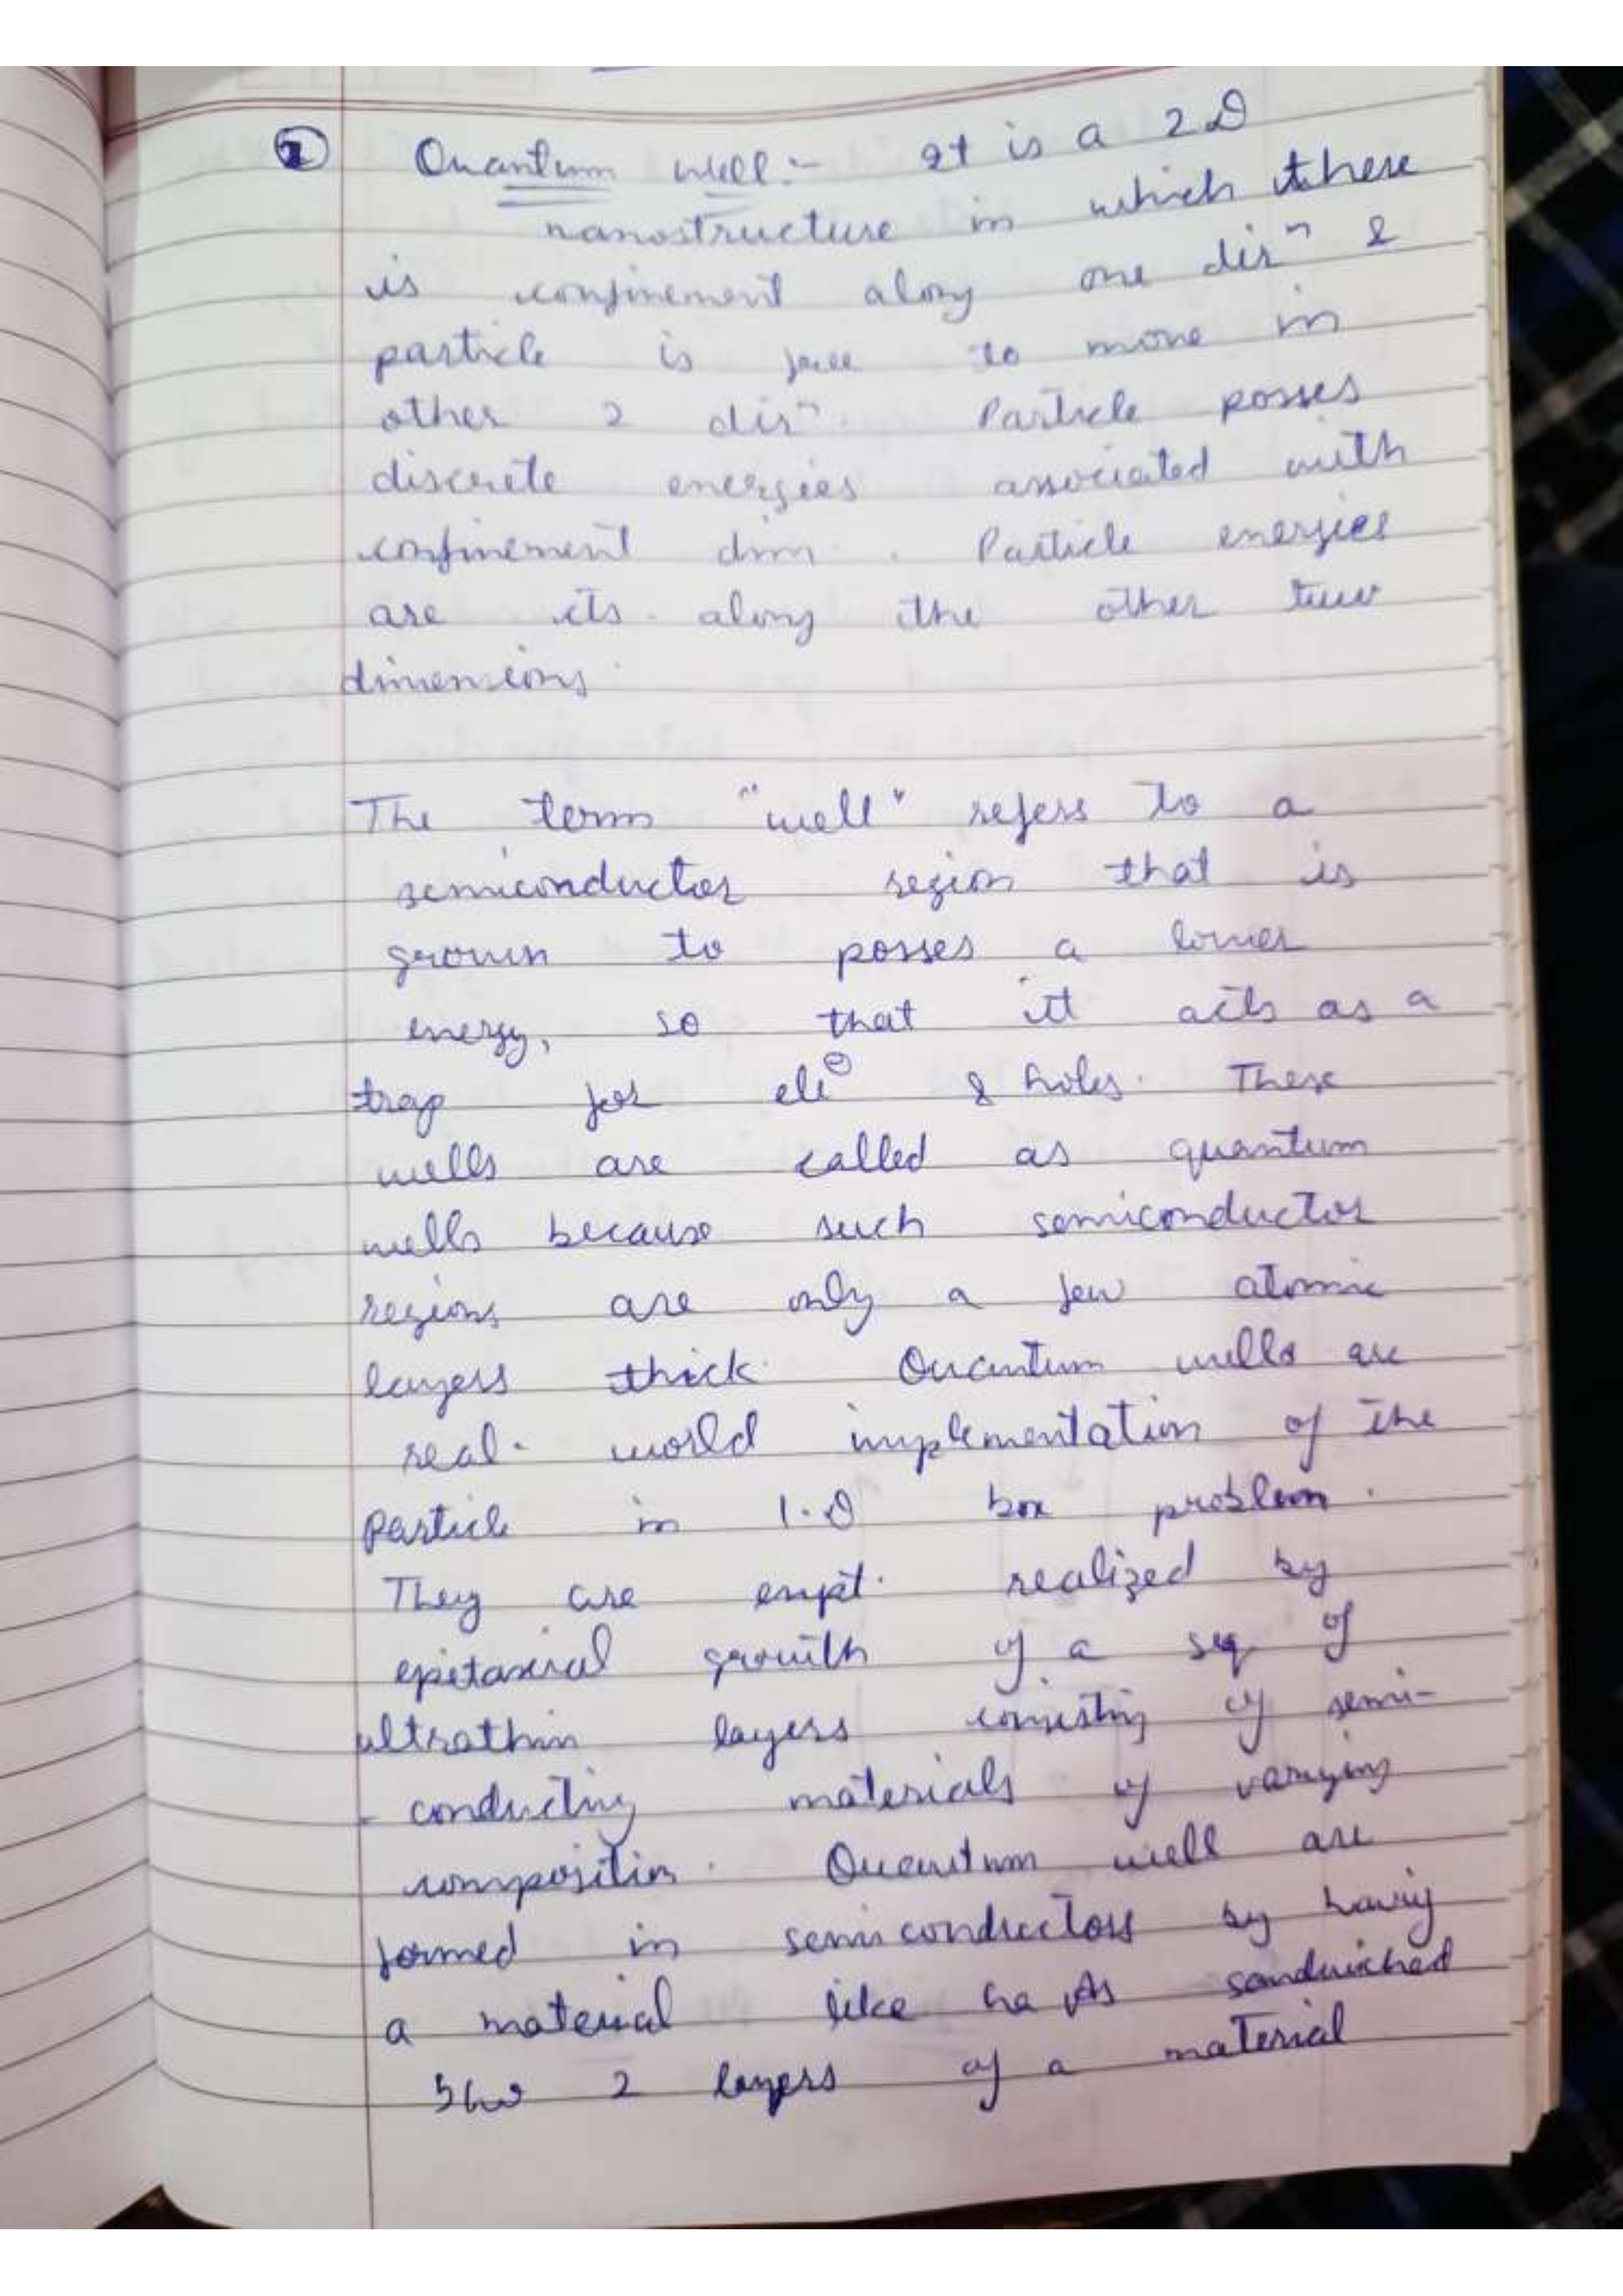 ① Quantum well :- It is a 2D
nanostructure in which there
is confinement along one dirⁿ &
particle is free to move in
other 2 dirⁿ. Particle posses
discrete energies associated with
confinement dim. Particle energies
are cts. along the other two
dimensions.
The term "well" refers to a
semiconductor region that is
grown to posses a lower
energy, so that it acts as a
trap for ele⊖ & holes. These
wells are called as quantum
wells because such semiconductor
regions are only a few atomic
layers thick. Quantum wells are
real-world implementation of the
particle in 1-D box problem.
They are expt. realized by
epitaxial growth of a seq of
ultrathin layers consisting of semi-
- conducting materials of varying
composition. Quantum well are
formed in semiconductors by having
a material like GaAs sandwiched
b/w 2 layers of a material